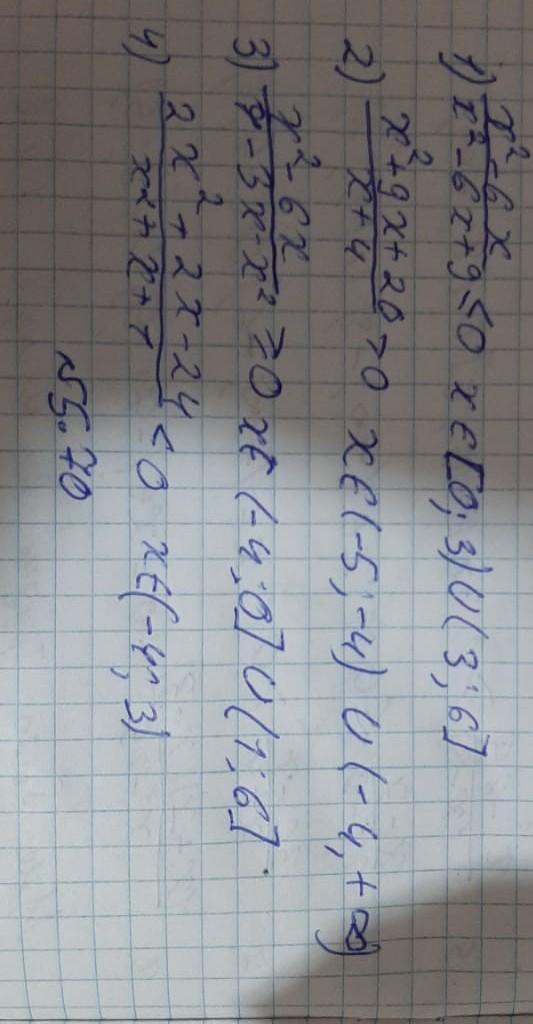 1) x²-6x / x²-6x+9 ≤0 x∈[0;3)∪(3;6]
2) x²+9x+20 / x+4 >0 x∈(-5;-4)∪(-4,+∞)
3) x²-6x / 4-3x-x² ≥0 x∈(-4;0]∪(1;6]
4) 2x²+2x-24 / x²+x+1 <0 x∈(-4;3)
№5.70